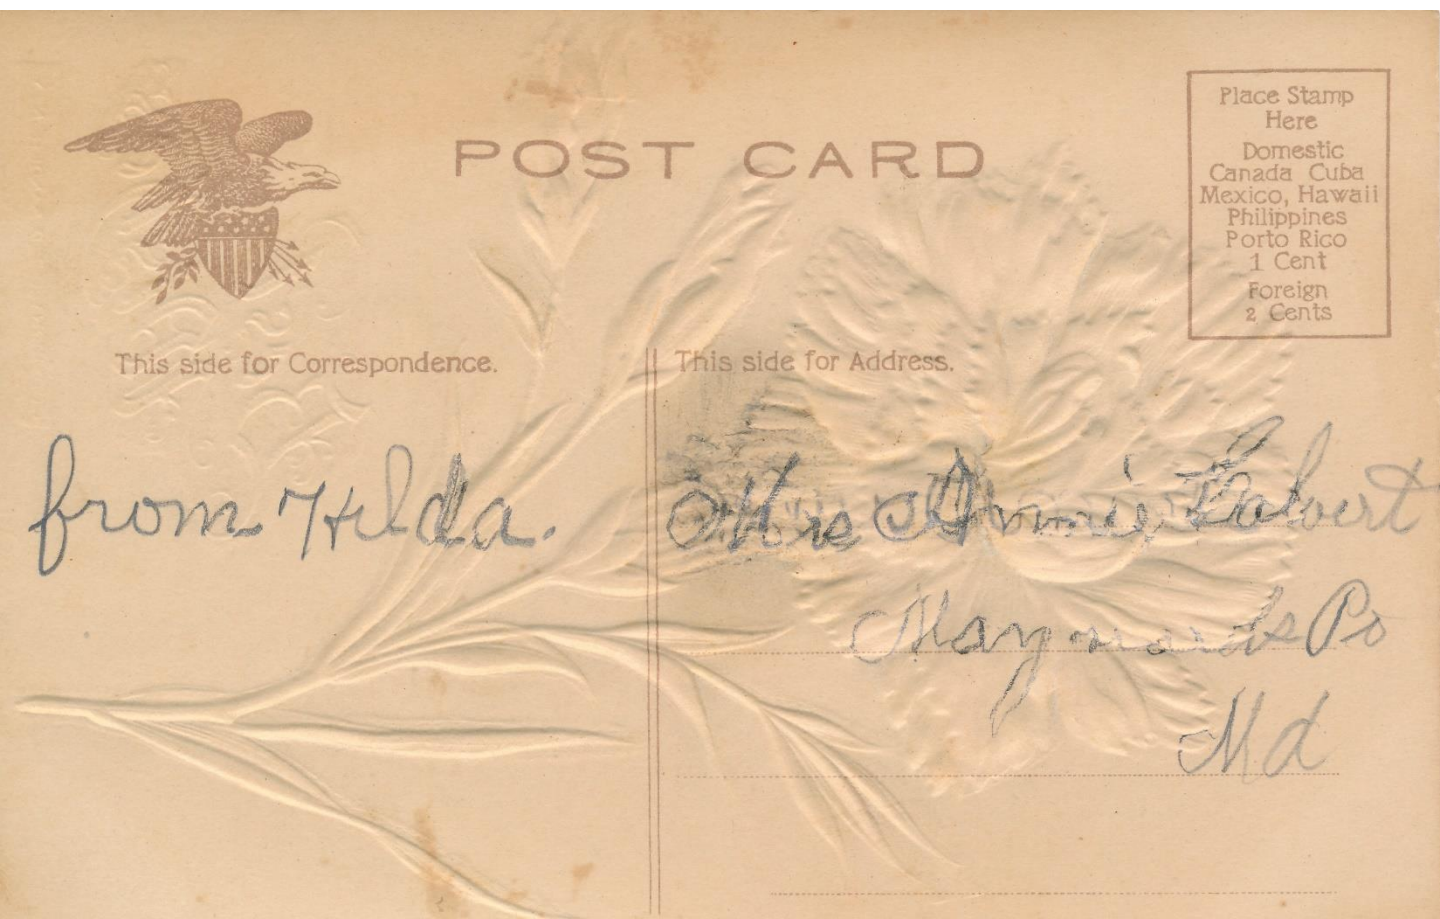 POST CARD
Place Stamp
Here
Domestic
Canada Cuba
Mexico, Hawaii
Philippines
Porto Rico
1 Cent
Foreign
2 Cents
This side for Correspondence.
This side for Address.
from Hilda.
Mrs Annie
Maynards Po
Md